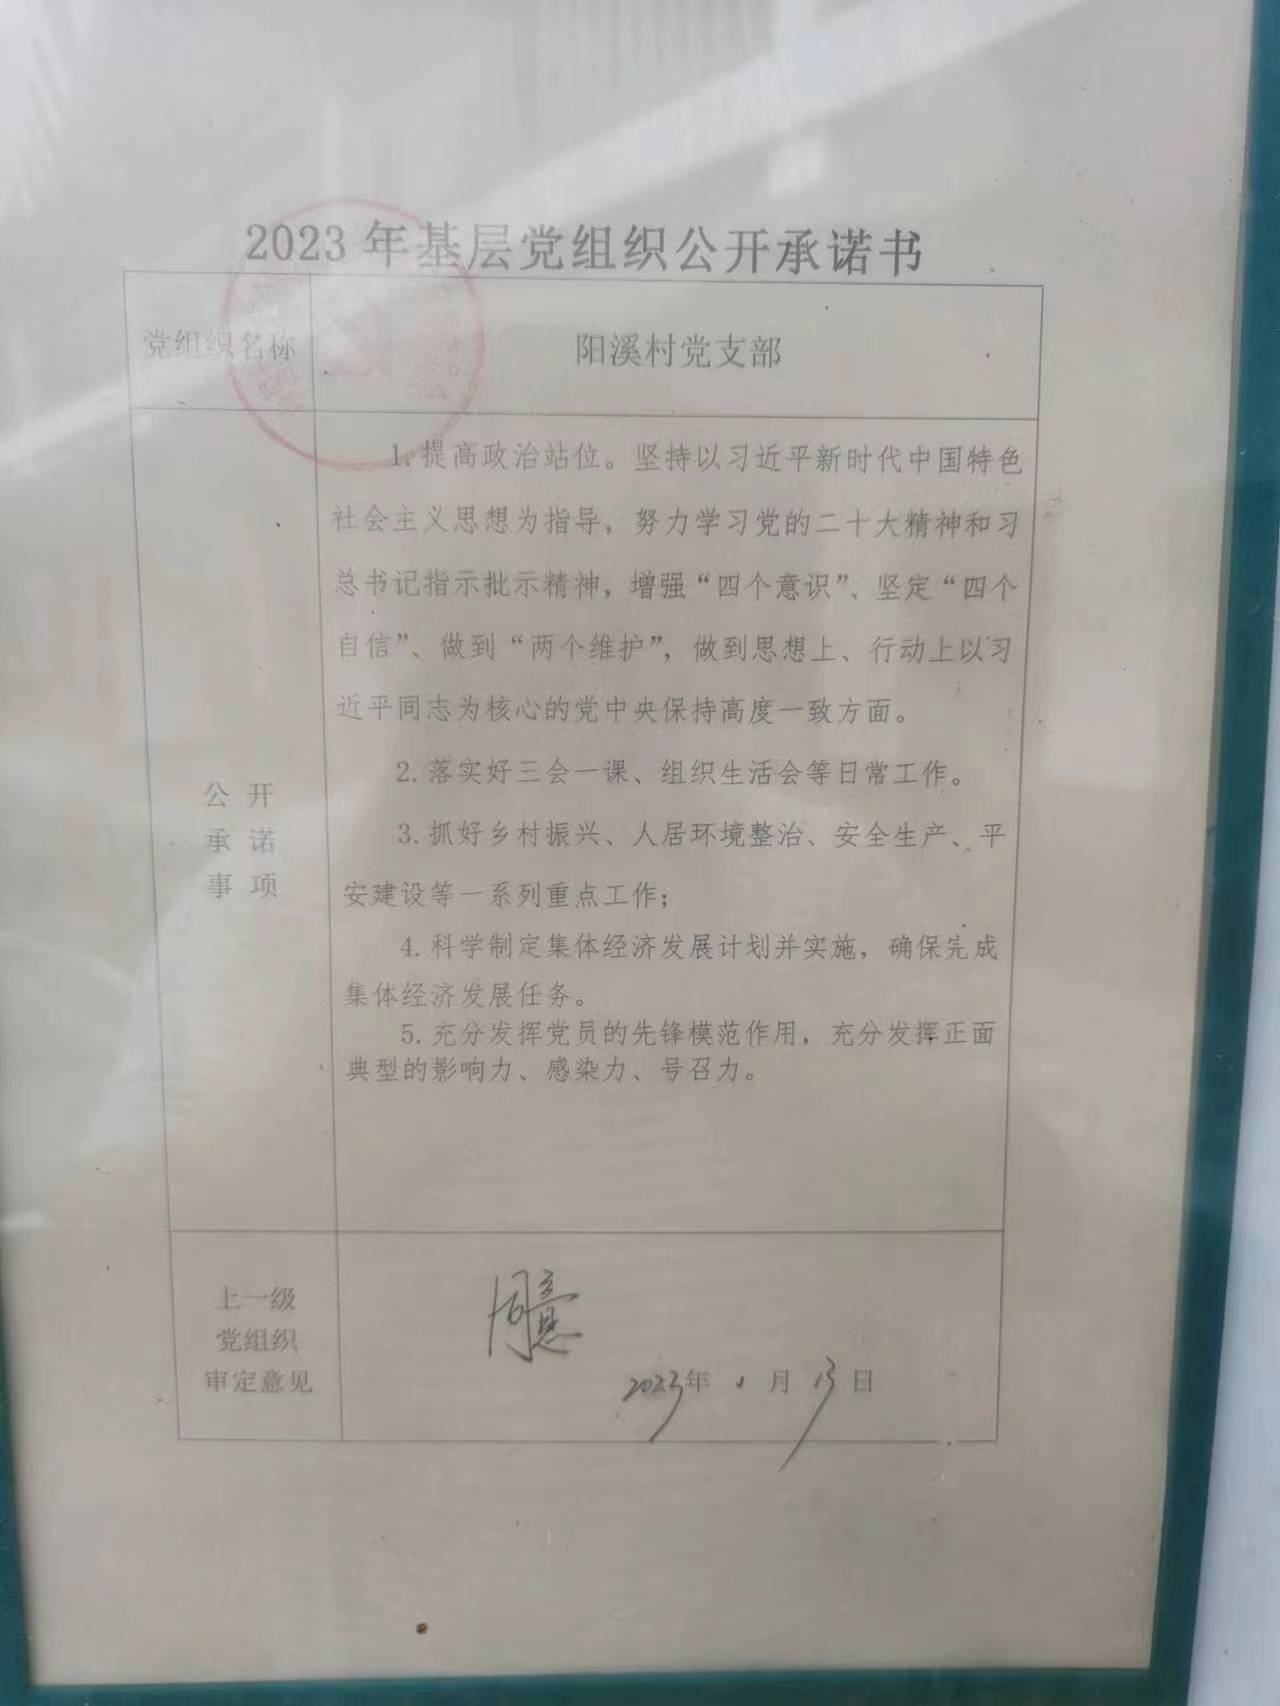 2023年基层党组织公开承诺书
党组织名称
阳溪村党支部
公开
承诺
事项
1.提高政治站位。坚持以习近平新时代中国特色
社会主义思想为指导，努力学习党的二十大精神和习
总书记指示批示精神，增强“四个意识”、坚定“四个
自信”、做到“两个维护”，做到思想上、行动上以习
近平同志为核心的党中央保持高度一致方面。
2.落实好三会一课、组织生活会等日常工作。
3.抓好乡村振兴、人居环境整治、安全生产、平
安建设等一系列重点工作；
4.科学制定集体经济发展计划并实施，确保完成
集体经济发展任务。
5.充分发挥党员的先锋模范作用，充分发挥正面
典型的影响力、感染力、号召力。
上一级
党组织
审定意见
同意
2023年1月13日